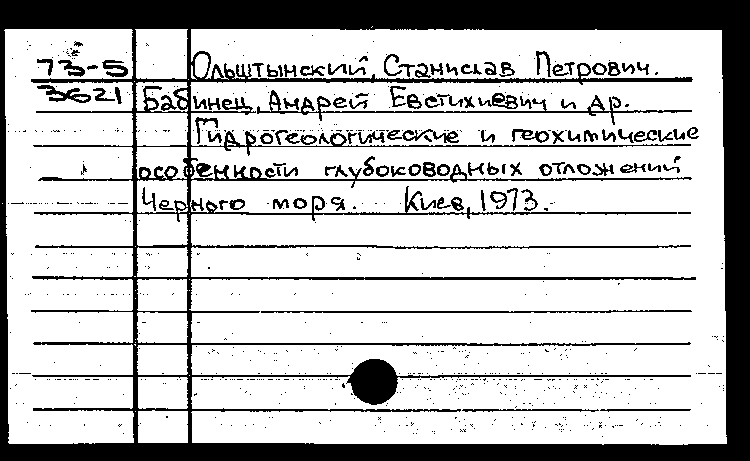 73-5 Ольштынский, Станислав Петрович.
3621 Бабинец, Андрей Евстихиевич и др.
Гидрогеологические и геохимические
особенности глубоководных отложений
Черного моря. Киев, 1973.